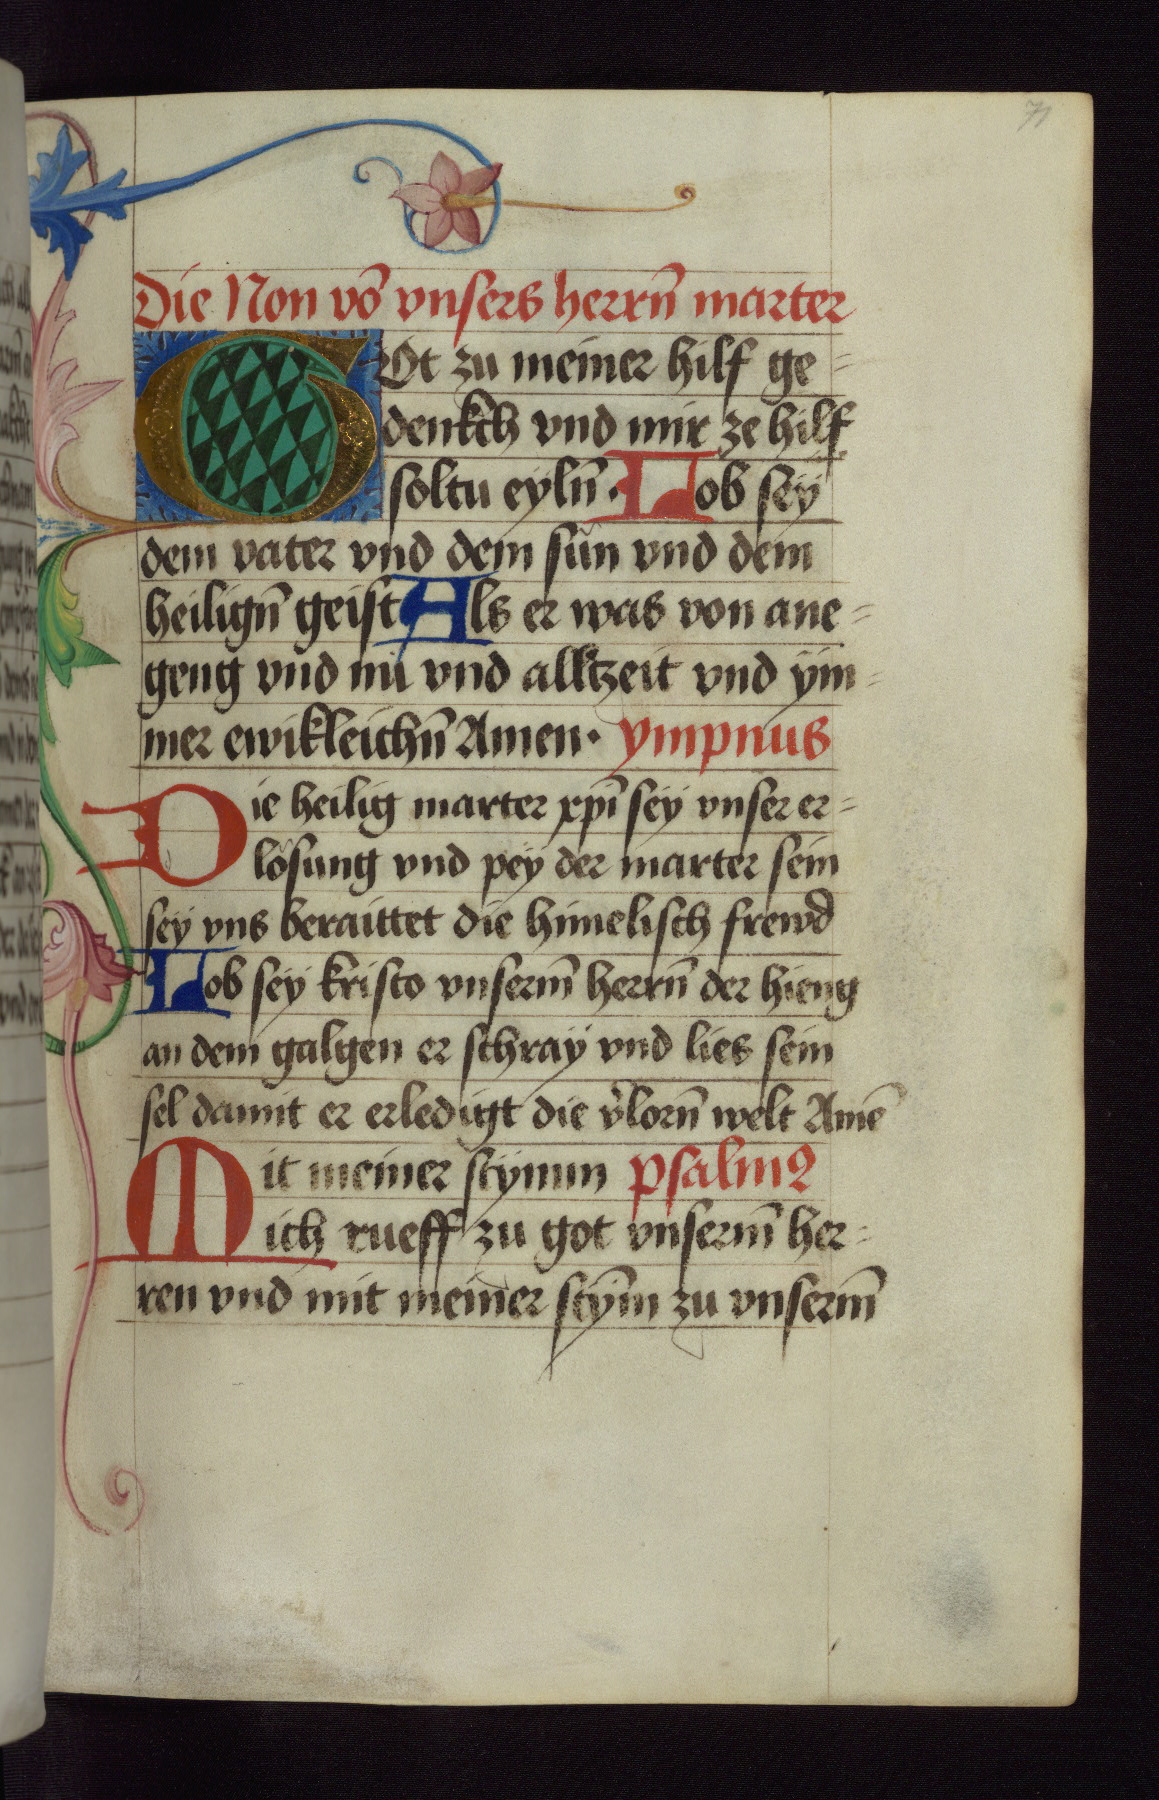 71
Die Non vō vnsers herrn̄ marter
GOt zu meiner hilf ge=
denkch vnd mir ze hilf
soltu eyln̄. Lob sey
dem vater vnd dem sun vnd dem
heilign̄ geist Als er was von ane=
geng vnd nu vnd alltzeit vnd ÿm=
mer ewikleichn̄ Amen. ympnus
Die heilig marter xp̄i seÿ vnser er=
lösung vnd peÿ der marter sein
seÿ vns beraittet die himelisch frewd
Lob seÿ kristo vnserm̄ herrn̄ der hieng
an dem galgen er schraÿ vnd lies sein
sel damit er erledigt die v̉lorn̄ welt Amē
Mit meiner stÿmm psalmꝰ
ich rueff zu got vnserm̄ her=
ren vnd mit meiner stÿm̄ zu vnserm̄